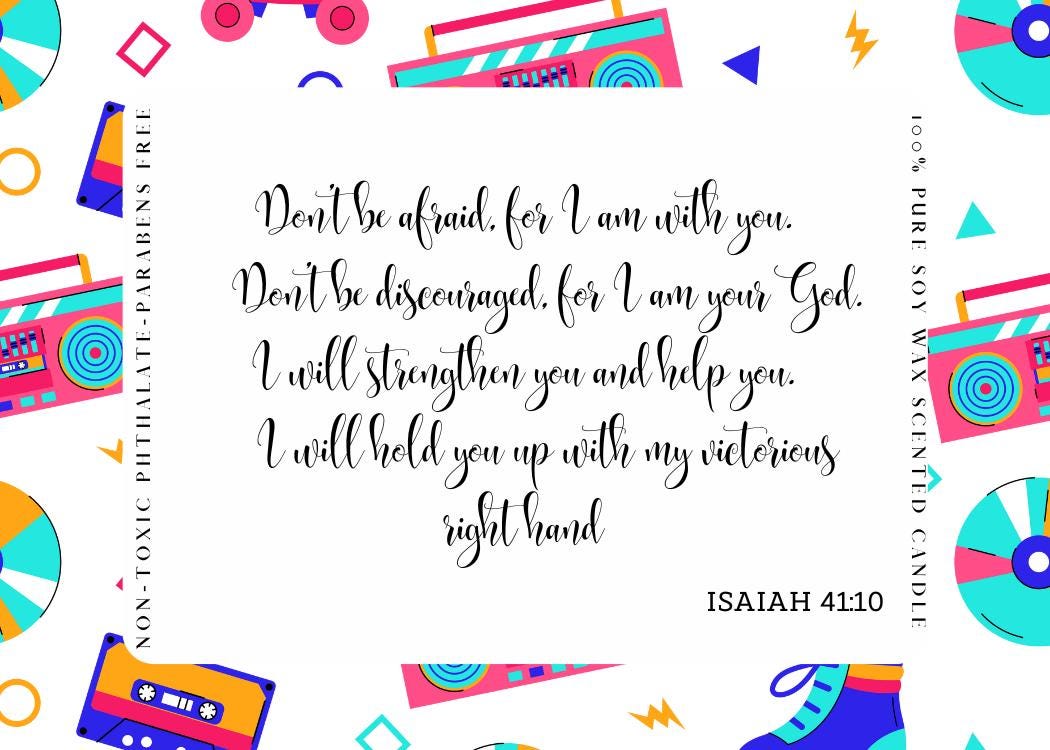 NON-TOXIC PHTHALATE-PARABENS FREE
Don't be afraid, for I am with you.
Don't be discouraged, for I am your God.
I will strengthen you and help you.
I will hold you up with my victorious
right hand
ISAIAH 41:10
100% PURE SOY WAX SCENTED CANDLE